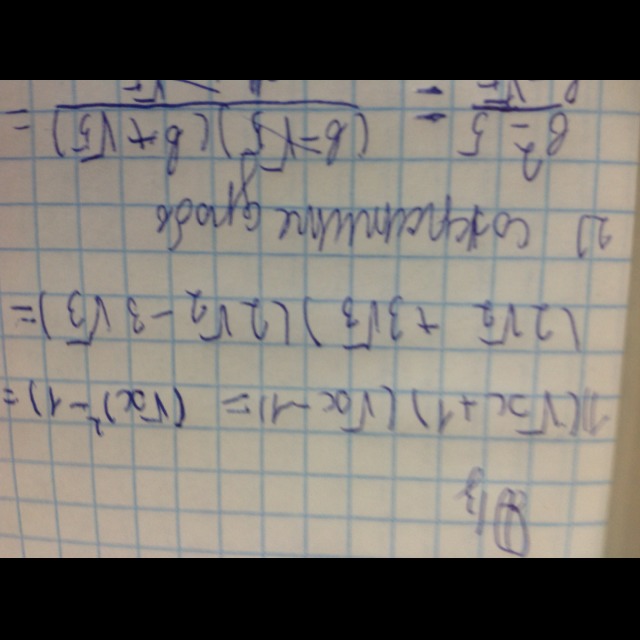 Д/з
1) (√x + 1)(√x - 1) = (√x)² - 1) =
(2√2 + 3√3)(2√2 - 3√3) =
2) сократите дробь
в² - 5 = (в - √5)(в + √5) =